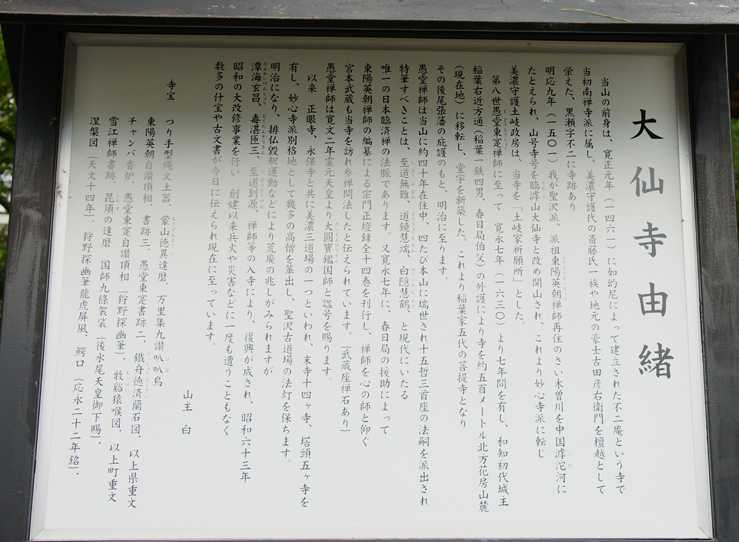 大仙寺由緒
当山の前身は、寛正元年（一四六一）に如的尼によって建立された不二庵という寺で
当初南禅寺派に属し、美濃守護代の斎藤氏一族や地元の豪士古田彦右衛門を檀越として
栄えた。黒瀬字不二に寺跡あり
明応九年（一五〇一）我が聖沢派、派祖東陽英朝禅師再住のさい木曽川を中国滹沱河に
たとえられ、山号寺号を臨滹山大仙寺と改め開山され、これより妙心寺派に転し
美濃守護土岐政房は、当寺を「土岐家祈願所」とした。
第八世愚堂東寔禅師に至って、寛永七年（一六三〇）より七年間を有し、和知初代城主
稲葉右近方通（稲葉一鉄四男、春日局伯父）の外護により寺を約五百メートル北万花房山麓
（現在地）に移転し、堂宇を新築した。これより稲葉家五代の菩提寺となり
その後尾張藩の庇護のもと、明治に至ります。
愚堂禅師は当山に約四十年在住中、四たび本山に瑞世され十五哲三首座の法嗣を派出され
特筆すべきことは、至道無難、道鏡慧端、白隠慧鶴、と現代にいたる
唯一の日本臨済禅の法脈であります。又寛永七年に、春日局の援助によって
東陽英朝禅師の編纂による宗門正燈録全十四巻を刊行し、禅師を心の師と仰ぐ
宮本武蔵も当寺を訪れ参禅問法したと伝えられています。「武蔵座禅石あり」
愚堂禅師は寛文二年霊元天皇より大圓寶鑑国師と諡号を賜ります。
以来、正眼寺、永保寺と共に美濃三道場の一つといわれ、末寺十四ヶ寺、塔頭五ヶ寺を
有し、妙心寺派別格地として幾多の高僧を輩出し、聖沢古道場の法灯を保ちます。
明治になり、排仏毀釈運動などにより荒廃の兆しがみられますが
潭海玄昌、毒湛匝三、至道到源、禅師等の入寺により、復興が成され、昭和六十三年
昭和の大改修事業を行い、創建以来兵火や災害などに一度も遭うこともなく
数多の什宝や古文書が今日に伝えられ現在に至っています。
山主 白
寺宝 つり手型縄文土器、蒙山徳異達磨、万里集九讃叭叭鳥
東陽英朝自讃頂相、書跡三、愚堂東寔書跡二、鐵舟徳済蘭石図、以上県重文
チャンバ香炉、愚堂東寔自讃頂相「狩野探幽筆」、牧谿猿猴図、以上町重文
雪江禅師書跡、昆頃の達磨、国師九條袈裟「後水尾天皇御下賜」、
涅槃図「天文十四年」、狩野探幽筆龍虎屏風、鰐口「応永二十二年銘」、